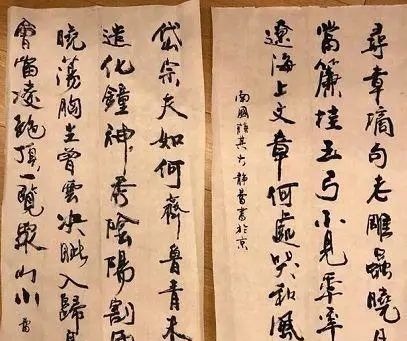 尋章摘句老雕蟲曉月
當簾挂玉弓不見年年
遼海上文章何處哭秋風
岱宗夫如何齊魯青未
造化鐘神秀陰陽割昏
曉蕩胸生曾雲決眥入歸
會當凌絕頂一覽眾山小